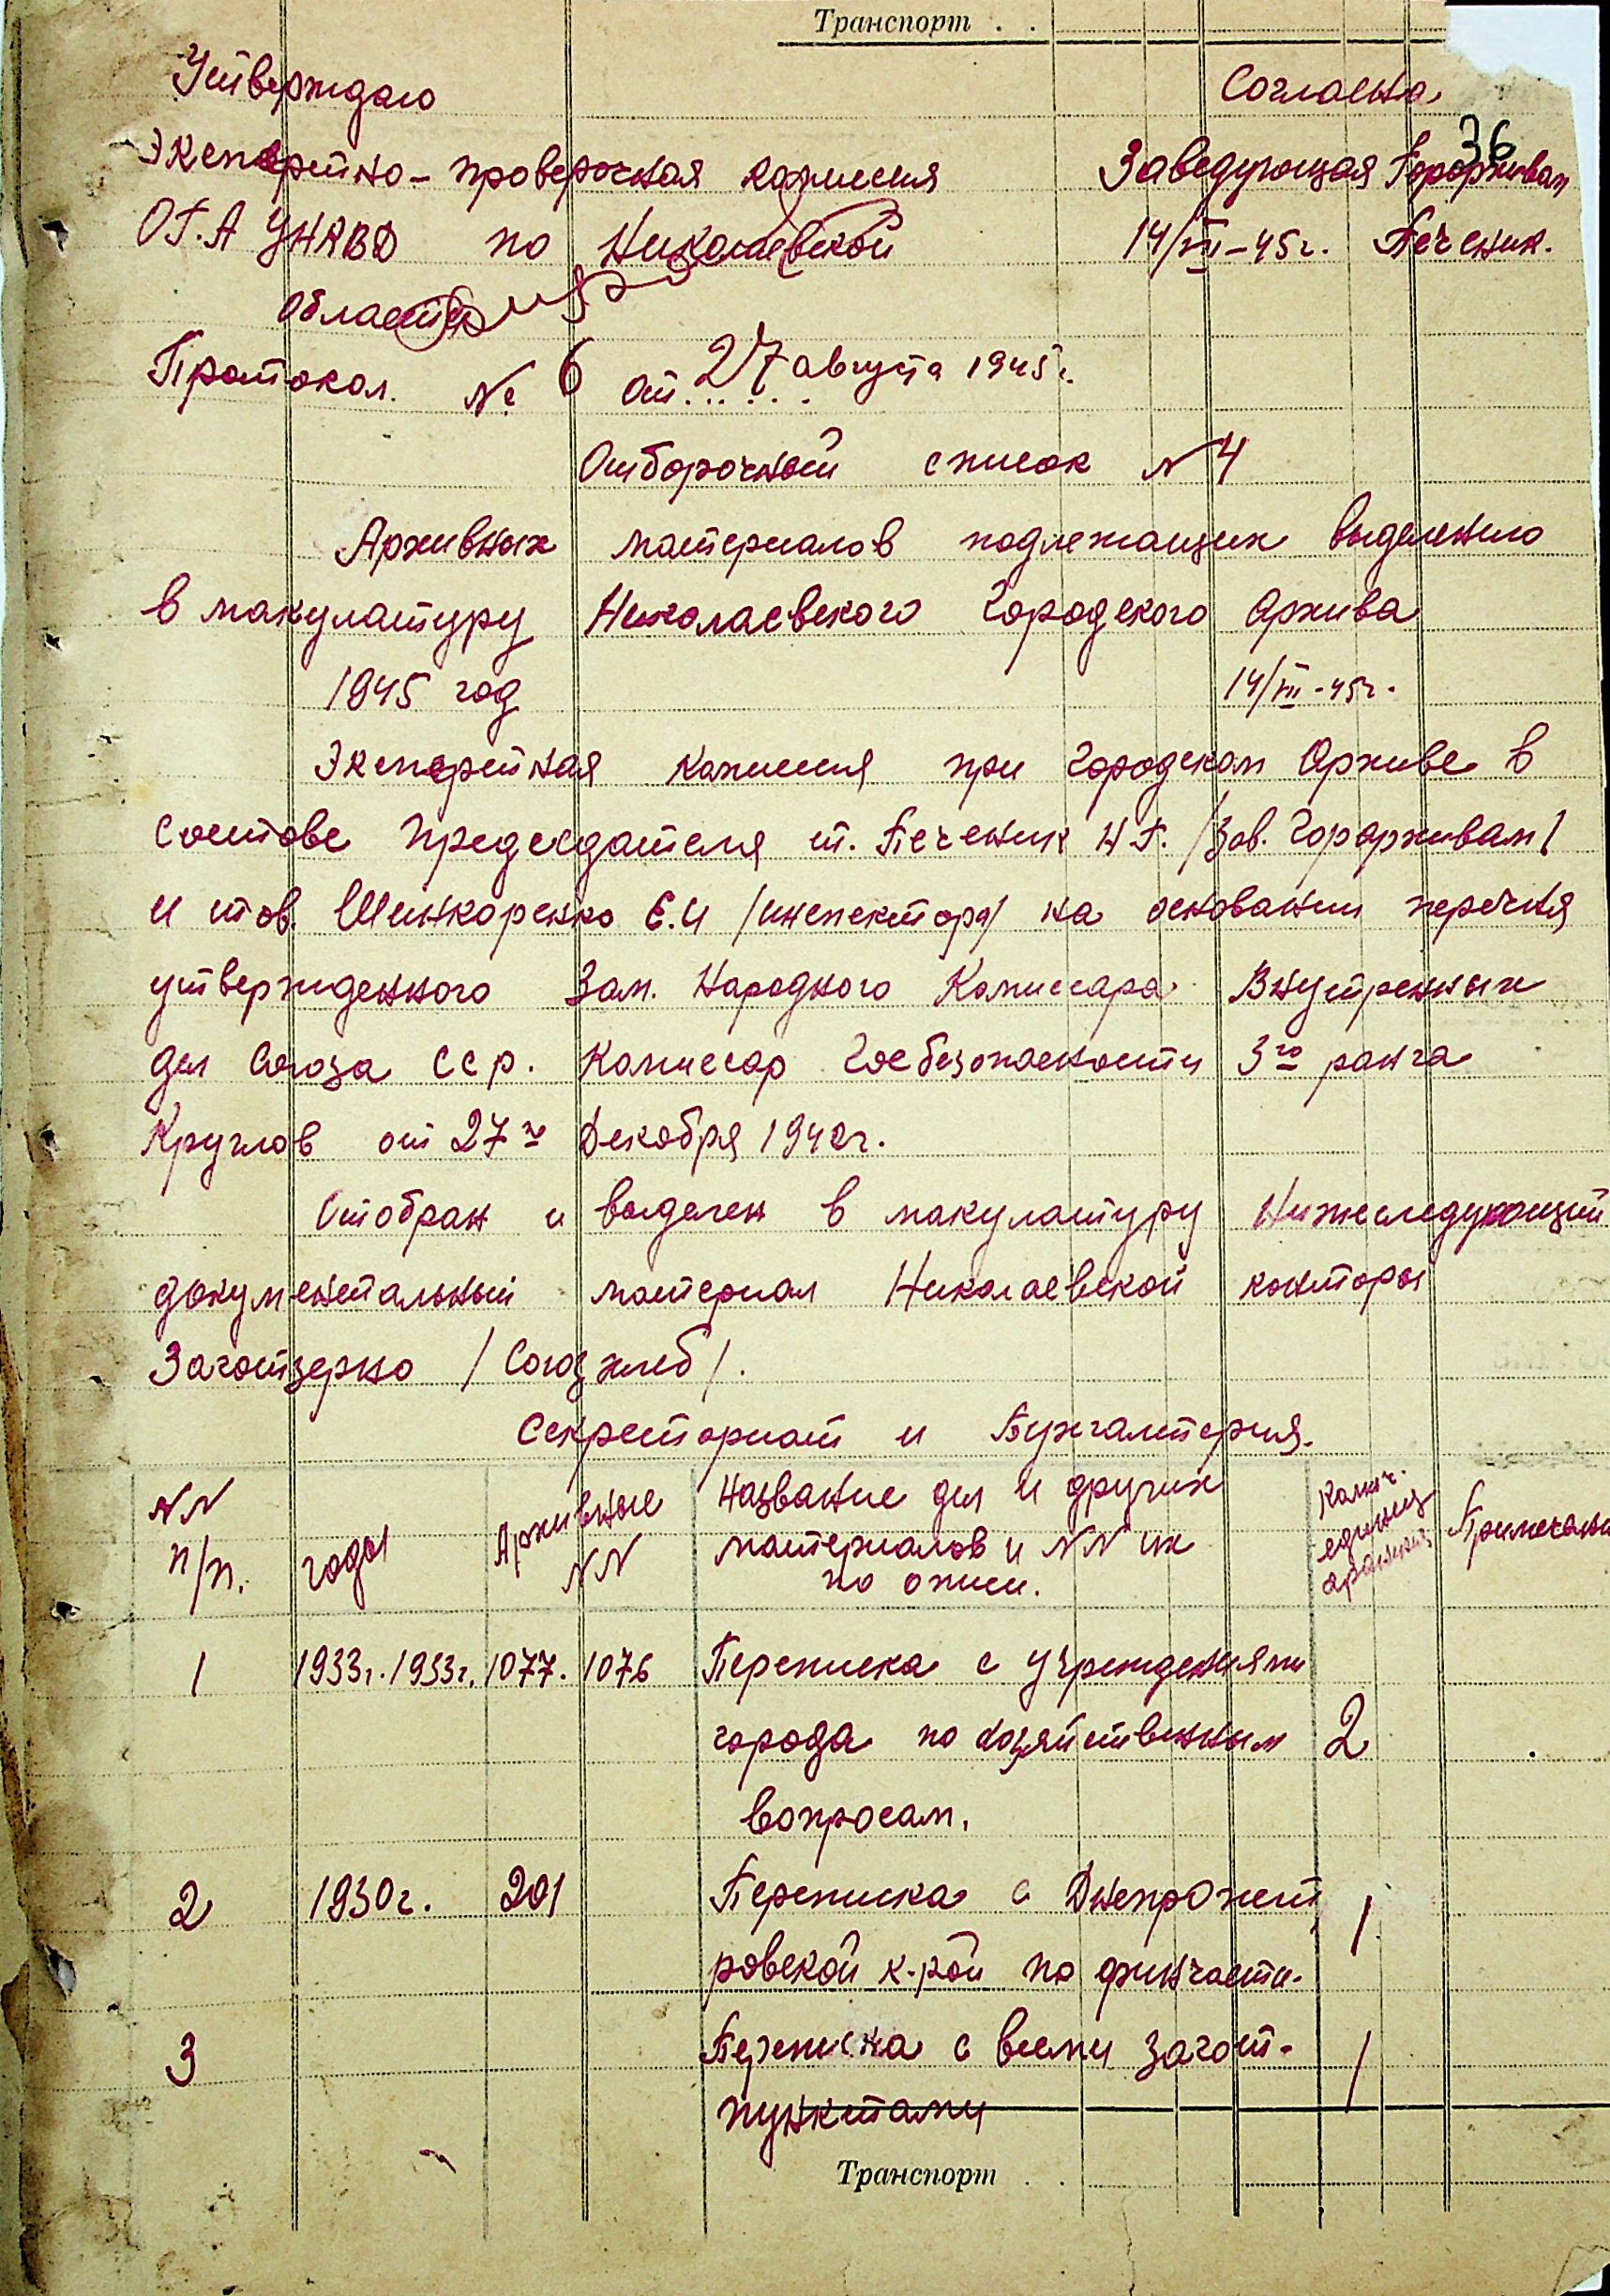 Транспорт . .
Утверждаю
Согласна
36
Экспертно-проверочная комиссия
Заведующая Горархивом
О.Г.А УНКВД по Николаевской
14/VIII-45г. Печеник.
области
Протокол. № 6 от..... 27 августа 1945г.
Отборочный список N 4
Архивных материалов подлежащих выделению
в макулатуру Николаевского Городского Архива
1945 год 14/VIII-45г.
Экспертная комиссия при городском Архиве в
составе председателя т. Печеник Н.Г. /Зав. Горархивом/
и тов. Шинкоренко Е.И /инспектора/ на основании перечня
утвержденного Зам. Народного Комиссара Внутренных
дел Союза ССР. Комиссар Госбезопасности 3го ранга
Круглов от 27го Декабря 1942г.
Отобран и выделен в макулатуру нижеследующий
документальный материал Николаевской конторы
Заготзерно /Союзхлеб/.
Секретариат и Бухгалтерия.
NN п/п.
годы
Архивные NN
Название дел и других
материалов и NN их
по описи.
Колич. единиц хранения
Примечани
1 1933г. 1933г. 1077. 1076 Переписка с учреждениями
города по хозяйственным 2
вопросам.
2 1930г. 201 Переписка с Днепропет
ровской к-рой по финчасти. 1
3 Переписка с всеми загот-
пунктами 1
Транспорт . .